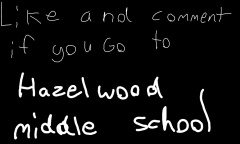 Like and comment
if you Go to
Hazelwood
middle school